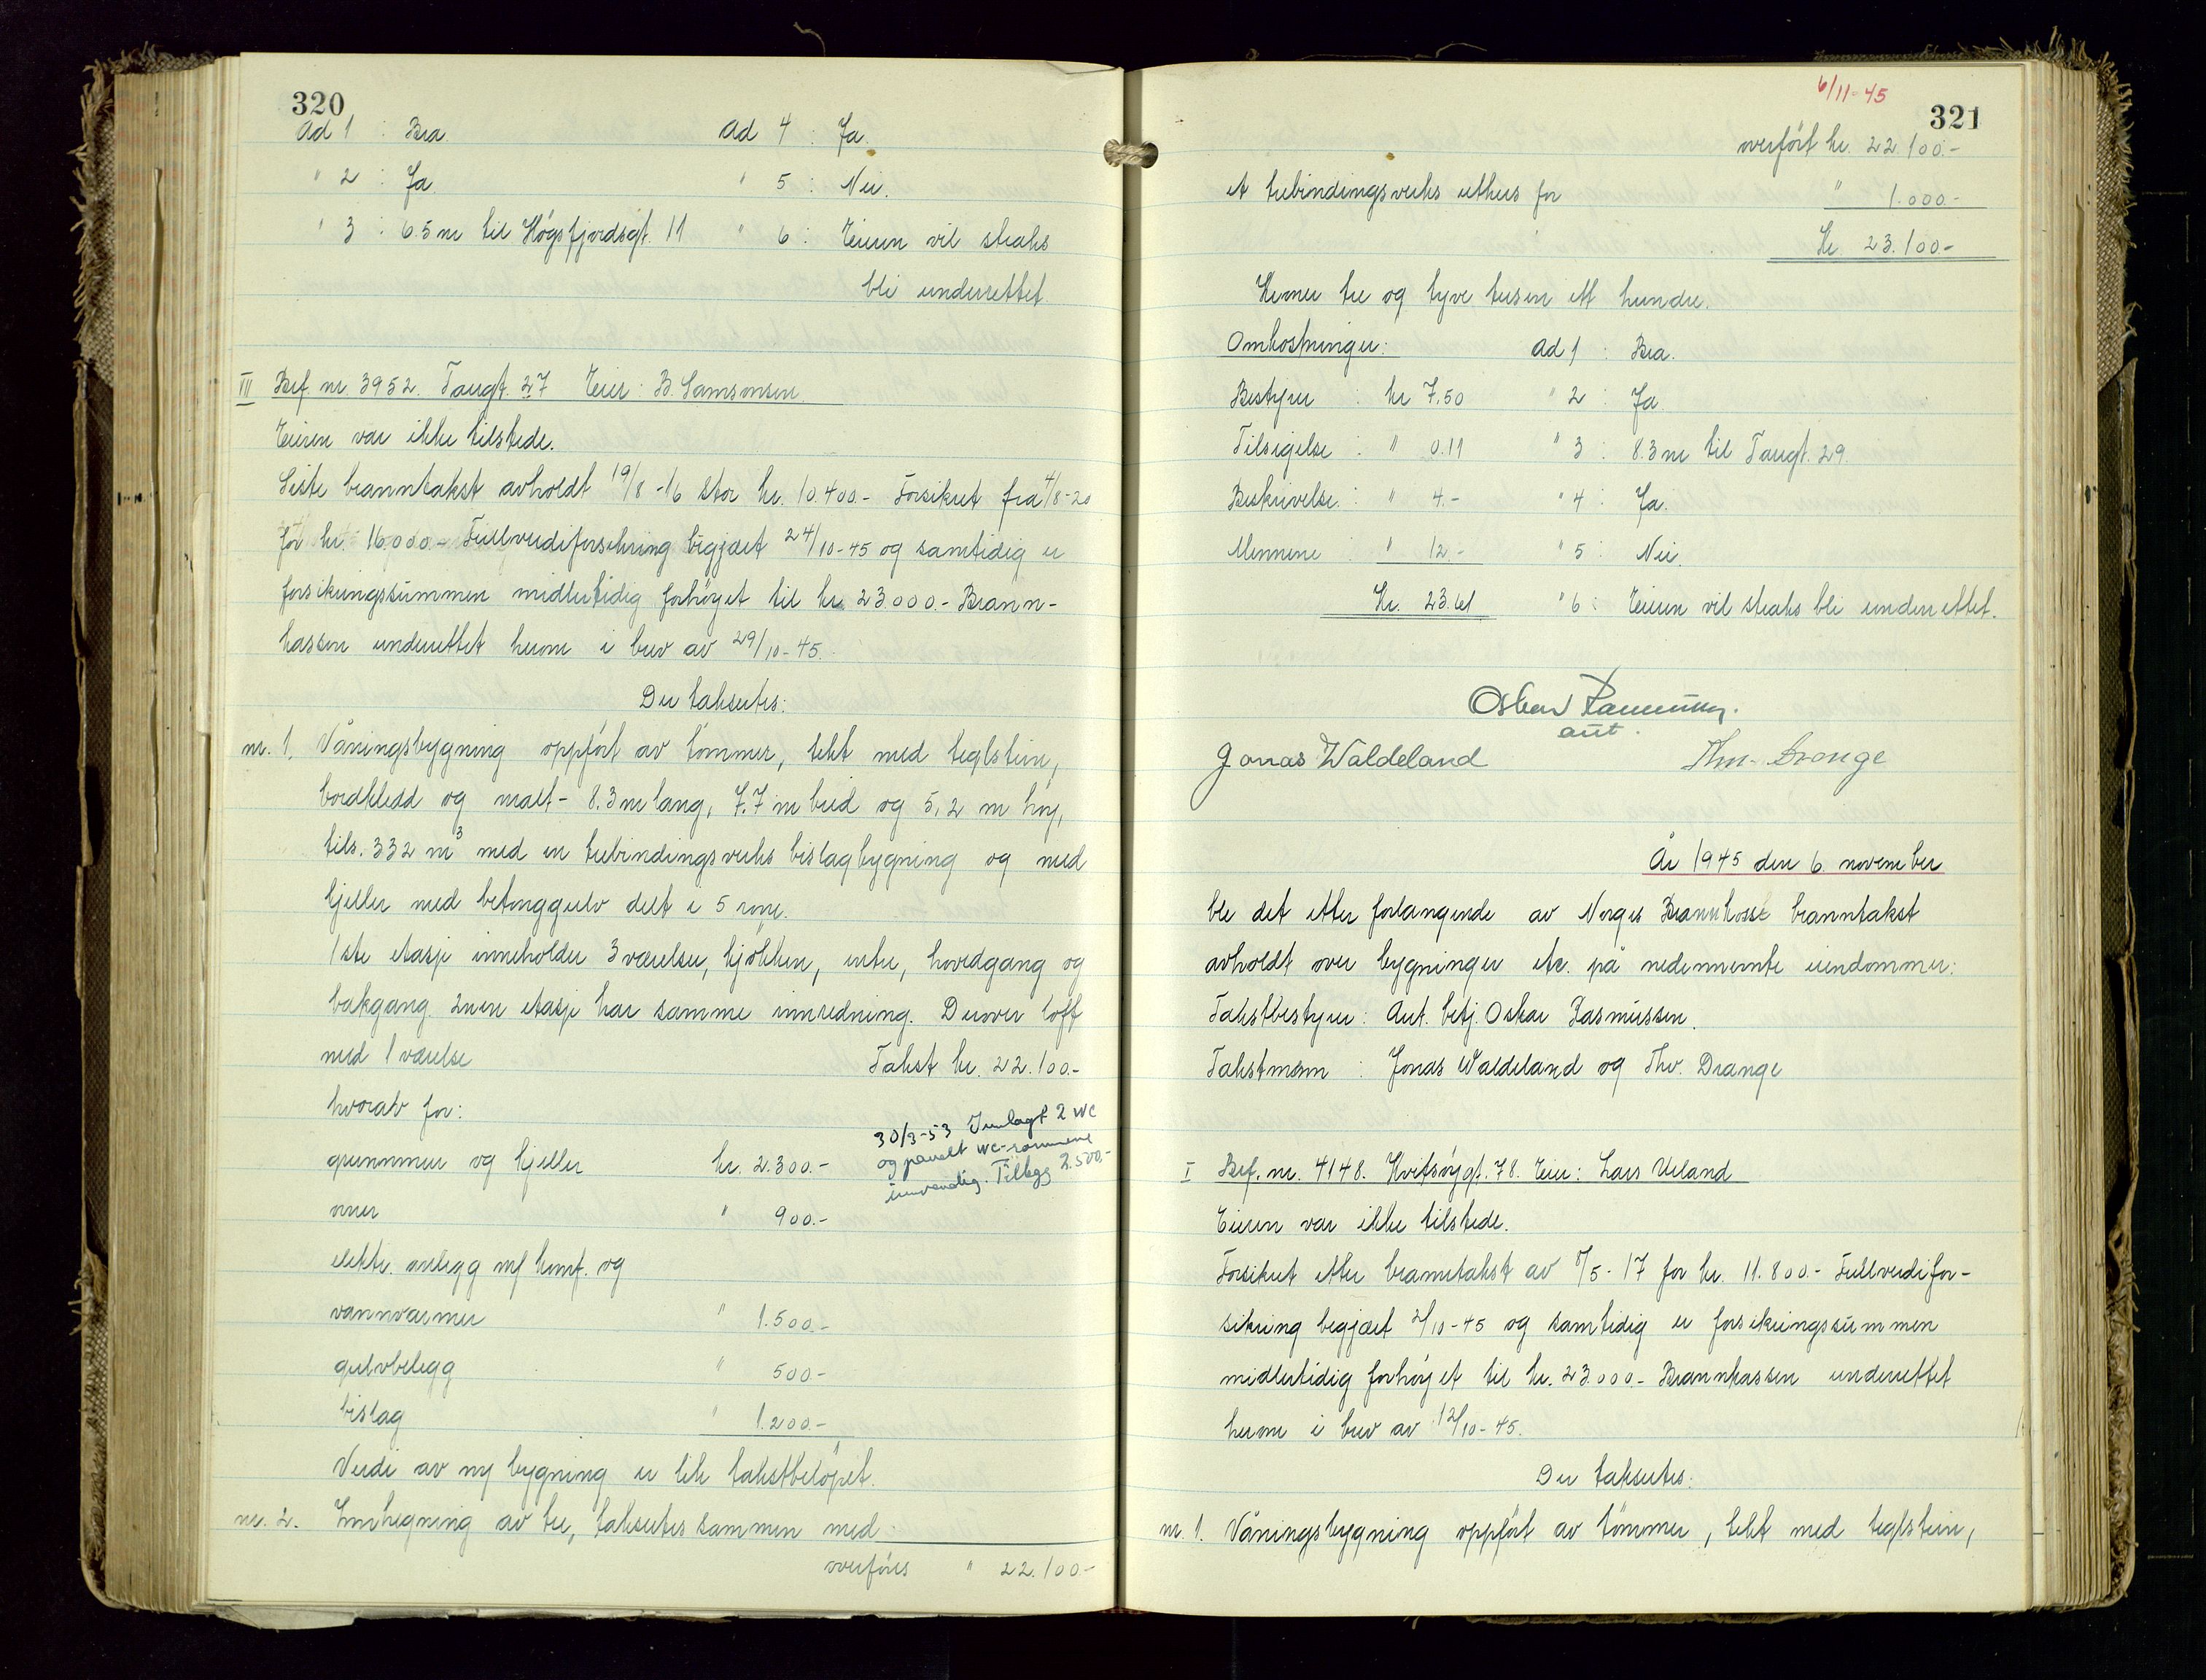 320
Ad 1 : Bra. Ad 4 : Ja.
" 2 : Ja " 5 : Nei.
" 3 : 6.5 m til Høgsfjordsgt. 11 " 6 : Eieren vil straks
bli underrettet.
VII Brf. nr. 3952. Taugt. 27 Eier: B. Samsonsen
Eieren var ikke tilstede.
Siste branntakst avholdt 19/8-16 stor kr. 10.400.- Forsikret fra 4/8-20
for kr. 16.000.- Fullverdiforsikring begjært 24/10-45 og samtidig er
forsikringssummen midlertidig forhöyet til kr. 23.000.- Brann-
kassen underrettet herom i brev av 29/10-45.
Der takseres:
nr. 1. Våningsbygning oppfört av tömmer, tekt med teglstein,
bordkledd og malt - 8.3 m lang, 7.7 m bred og 5,2 m höy,
tils. 332 m³ med en trebindingsverks bislagbygning og med
kjeller med betonggulv delt i 5 rom.
1ste etasje inneholder 3 værelser, kjökken, entre, hovedgang og
bakgang. 2nen etasje har samme innredning. Derover loft
med 1 værelse Takst kr. 22.100.-
hvorav for:
30/3-53 Innlagt 2 WC
og panelt WC-rommene
innvendig. Tillegg 2.500.-
grunnmur og kjeller kr. 2.300.-
ovner " 900.-
elektr. anlegg m/ komf. og
vannvarmer " 1.500.-
gulvbelegg " 500.-
bislag " 1.200.-
Verdi av ny bygning er lik takstbelöpet.
nr. 2. Innhegning av tre, takseres sammen med
overföres " 22.100.-
6/11-45
321
overfört kr. 22.100.-
et trebindingsverks uthus for " 1.000.-
Kr. 23.100.-
Kroner tre og tyve tusen ett hundre.
Omkostninger: Ad 1 : Bra.
Bestyrer : kr 7.50 " 2 : Ja
Tilsigelse : " 0.11 " 3 : 8.3 m til Taugt. 29.
Beskrivelse : " 4.- " 4 : Ja.
Mennene : " 12.- " 5 : Nei.
Kr. 23.61 " 6 : Eieren vil straks bli underrettet.
Oskar Rasmussen.
aut.
Jonas Waldeland Thv. Drange
År 1945 den 6. november
ble det etter forlangende av Norges Brannkasse branntakst
avholdt over bygninger etc. på nedennevnte eiendommer:
Takstbestyrer: Aut. betj. Oskar Rasmussen.
Takstmenn : Jonas Waldeland og Thv. Drange
I Brf. nr. 4148. Hvitsöygt. 78. Eier: Lars Ueland
Eieren var ikke tilstede.
Forsikret etter branntakst av 8/5-17 for kr. 11.800.- Fullverdifor-
sikring begjært 2/10-45 og samtidig er forsikringssummen
midlertidig forhöyet til kr. 23.000.- Brannkassen underrettet
herom i brev av 12/10-45.
Der takseres:
nr. 1. Våningsbygning oppfört av tömmer, tekt med teglstein,